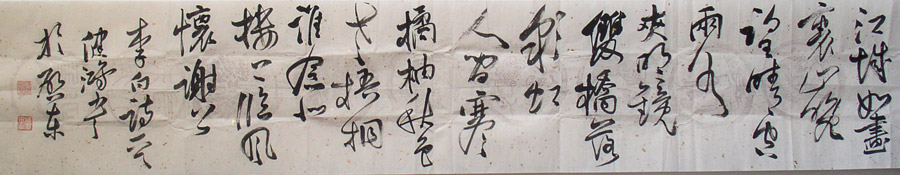 江城如畫
裏山晚
望晴空
兩水
夾明鏡
雙橋落
彩虹
人煙寒
橘柚秋色
老梧桐
誰念北
樓上臨風
懷謝公
李白詩
於東